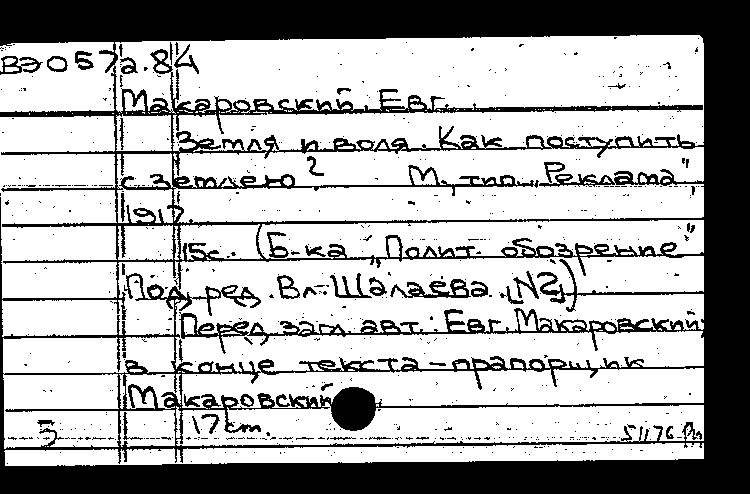 ВЭ057а.84
Макаровский, Евг.
Земля и воля. Как поступить
с землею? М., тип. „Реклама",
1917.
15с. (Б-ка „Полит. обозрение"
Под ред. Вл. Шалаева. N2)
Перед загл. авт.: Евг. Макаровский;
в конце текста - прапорщик
Макаровский
17 cm.
5 51176